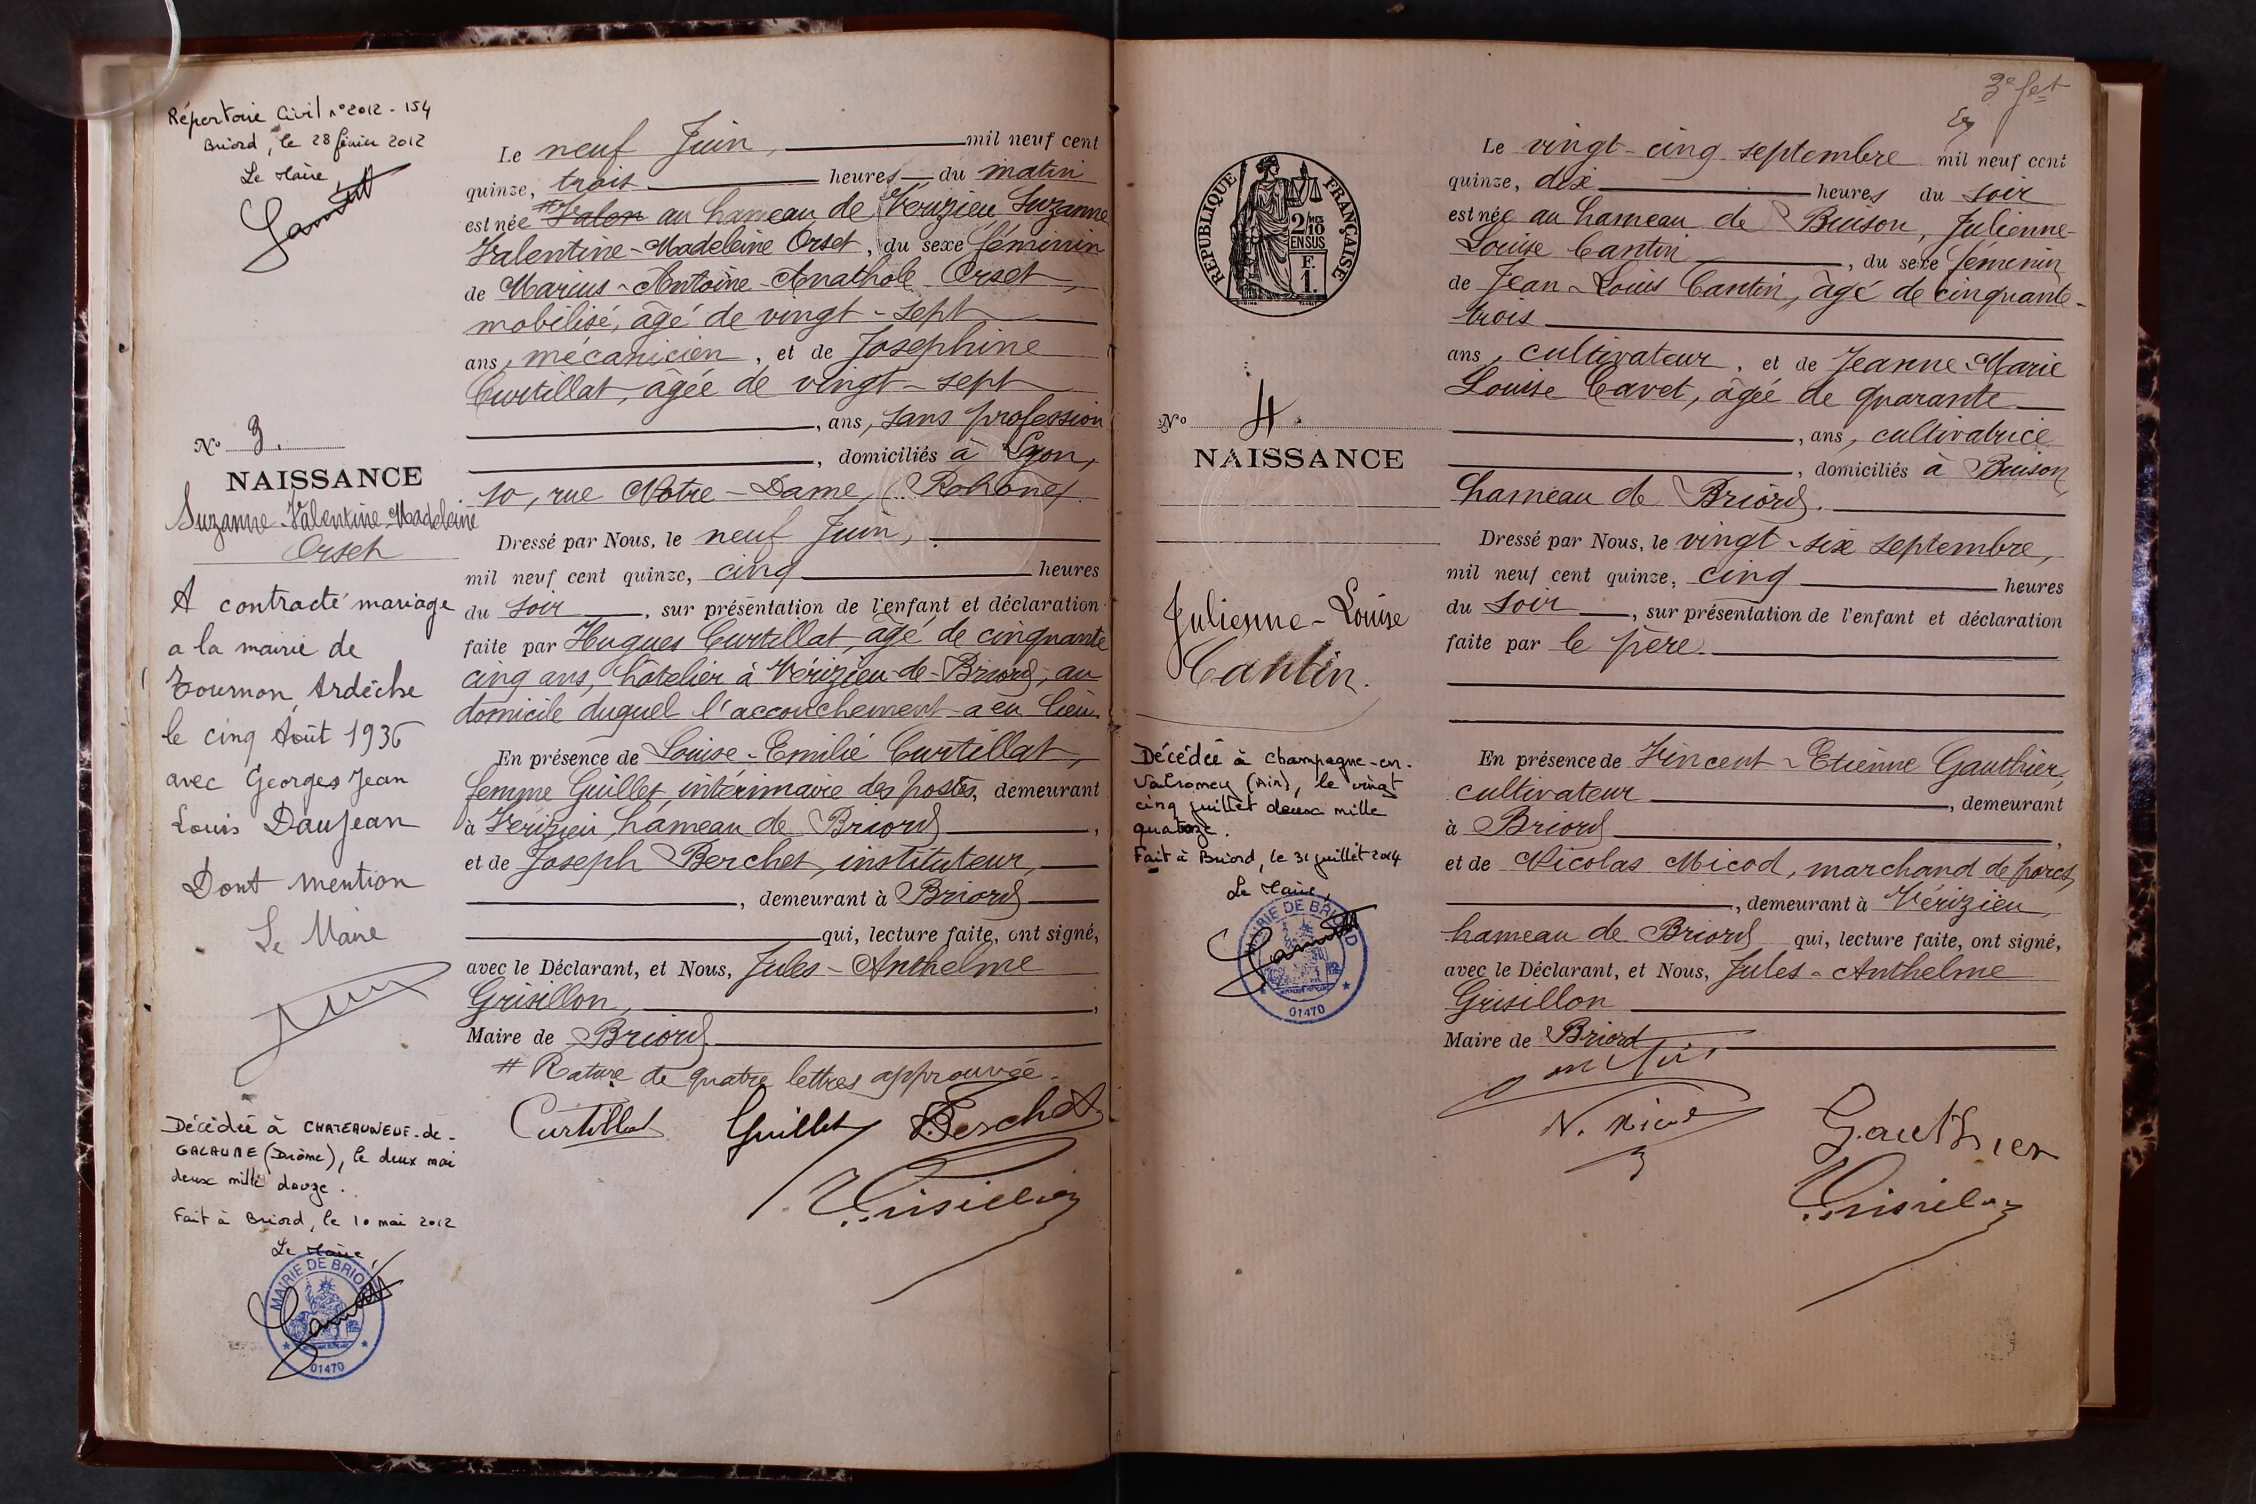 Répertoire Civil n°2012-154
Briord, le 28 février 2012
Le Maire,
N° 3.
NAISSANCE
Suzanne-Valentine-Madeleine
Orset
A contracté mariage
a la mairie de
Tournon, Ardèche
le cinq Août 1936
avec Georges Jean
Louis Daujean
Dont mention
Le Maire
Décédée à CHATEAUNEUF-de-
GALAURE (Drôme), le deux mai
deux mille douze.
Fait à Briord, le 10 mai 2012
Le Maire,
MAIRIE DE BRIORD
01470
Le neuf Juin, mil neuf cent
quinze, trois heures du matin
est née # Valen au hameau de Vérizieu Suzanne
Valentine-Madeleine Orset, du sexe féminin
de Marius-Antoine-Anathole Orset,
mobilisé, âgé de vingt-sept
ans, mécanicien, et de Josephine
Curtillat, âgée de vingt-sept
, ans, sans profession
, domiciliés à Lyon,
10, rue Notre-Dame, (Rohone).
Dressé par Nous, le neuf Juin,
mil neuf cent quinze, cinq heures
du soir, sur présentation de l'enfant et déclaration
faite par Hugues Curtillat, âgé de cinquante
cinq ans, hôtelier à Vérizieu-de-Briord, au
domicile duquel l'accouchement a eu lieu.
En présence de Louise-Emilie Curtillat,
femme Guillet, intérimaire des postes, demeurant
à Verizieu, hameau de Briord,
et de Joseph Berchet, instituteur,
, demeurant à Briord
qui, lecture faite, ont signé,
avec le Déclarant, et Nous, Jules-Anthelme
Grisillon,
Maire de Briord
# Rature de quatre lettres approuvée.
Curtillat Guillet Berchet
Grisillon
3e fet
RÉPUBLIQUE FRANÇAISE
2/10
EN SUS
F.
1.
N° 4.
NAISSANCE
Julienne-Louise
Cantin.
Décédée à Champagne-en-
Valromey (Ain), le vingt
cinq juillet deux mille
quatorze.
Fait à Briord, le 31 juillet 2014
Le Maire,
MAIRIE DE BRIORD
01470
Le vingt-cinq septembre mil neuf cent
quinze, dix heures du soir
est née au hameau de Buison, Julienne-
Louise Cantin, du sexe féminin
de Jean-Louis Cantin, âgé de cinquante-
trois
ans, cultivateur, et de Jeanne-Marie
Louise Cavet, âgée de quarante
, ans, cultivatrice
, domiciliés à Buison,
hameau de Briord.
Dressé par Nous, le vingt-six septembre,
mil neuf cent quinze, cinq heures
du soir, sur présentation de l'enfant et déclaration
faite par le père.
En présence de Vincent-Etienne Gauthier,
cultivateur, demeurant
à Briord,
et de Nicolas Micod, marchand de porcs,
, demeurant à Vérizieu,
hameau de Briord qui, lecture faite, ont signé,
avec le Déclarant, et Nous, Jules-Anthelme
Grisillon
Maire de Briord
N. Micod
Gauthier
Grisillon